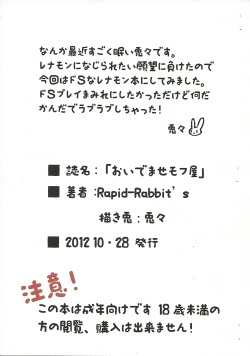 なんか最近すごく眠い兎々です。
レナモンになじられたい願望に負けたので
今回はFSなレナモン本にしてみました。
FSプレイまみれにしたかっただけど何だ
かんだでラブラブしちゃった!
兎々
■ 誌名:「おいでませモフ屋」
■ 著者:Rapid-Rabbit's
描き兎:兎々
■ 2012 10・28 発行
注意!
この本は成年向けです 18 歳未満の
方の閲覧、購入は出来ません!